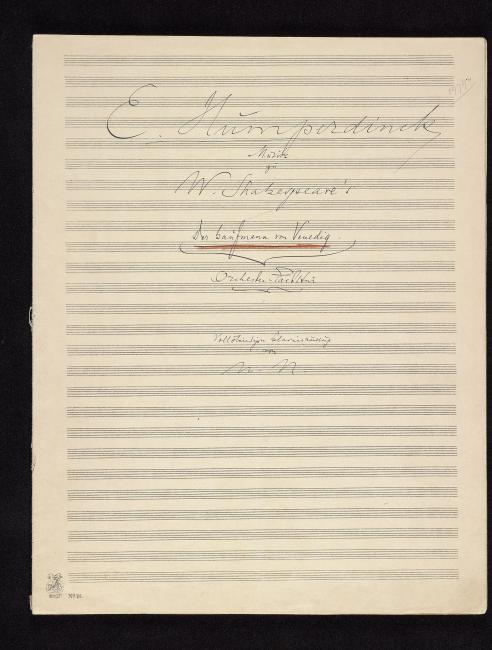 E. Humperdinck
Musik
zu
W. Shakespeare's
Der Kaufmann von Venedig.
Orchester-Partitur
Vollständiger Clavierauszug
von
N. N.
No. 14.